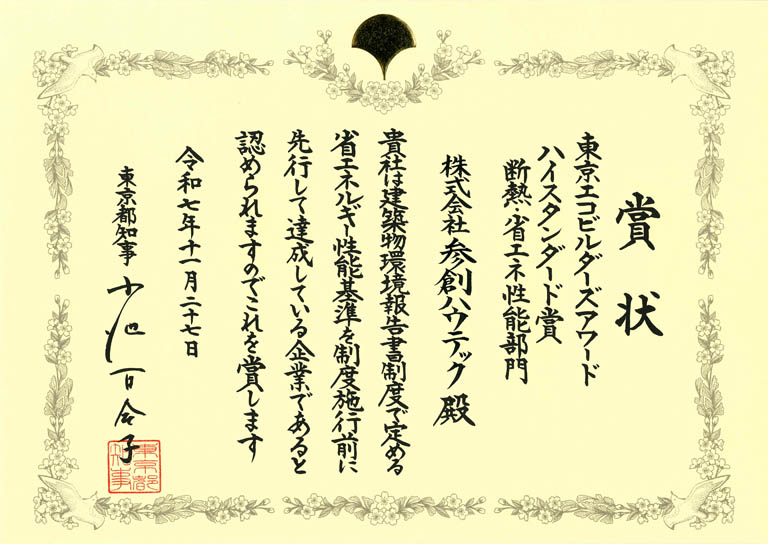 賞状
東京エコビルダーズアワード
ハイスタンダード賞
断熱・省エネ性能部門
株式会社 参創ハウテック 殿
貴社は建築物環境報告書制度で定める
省エネルギー性能基準を制度施行前に
先行して達成している企業であると
認められますのでこれを賞します
令和七年十一月二十七日
東京都知事 小池百合子
東京都知事